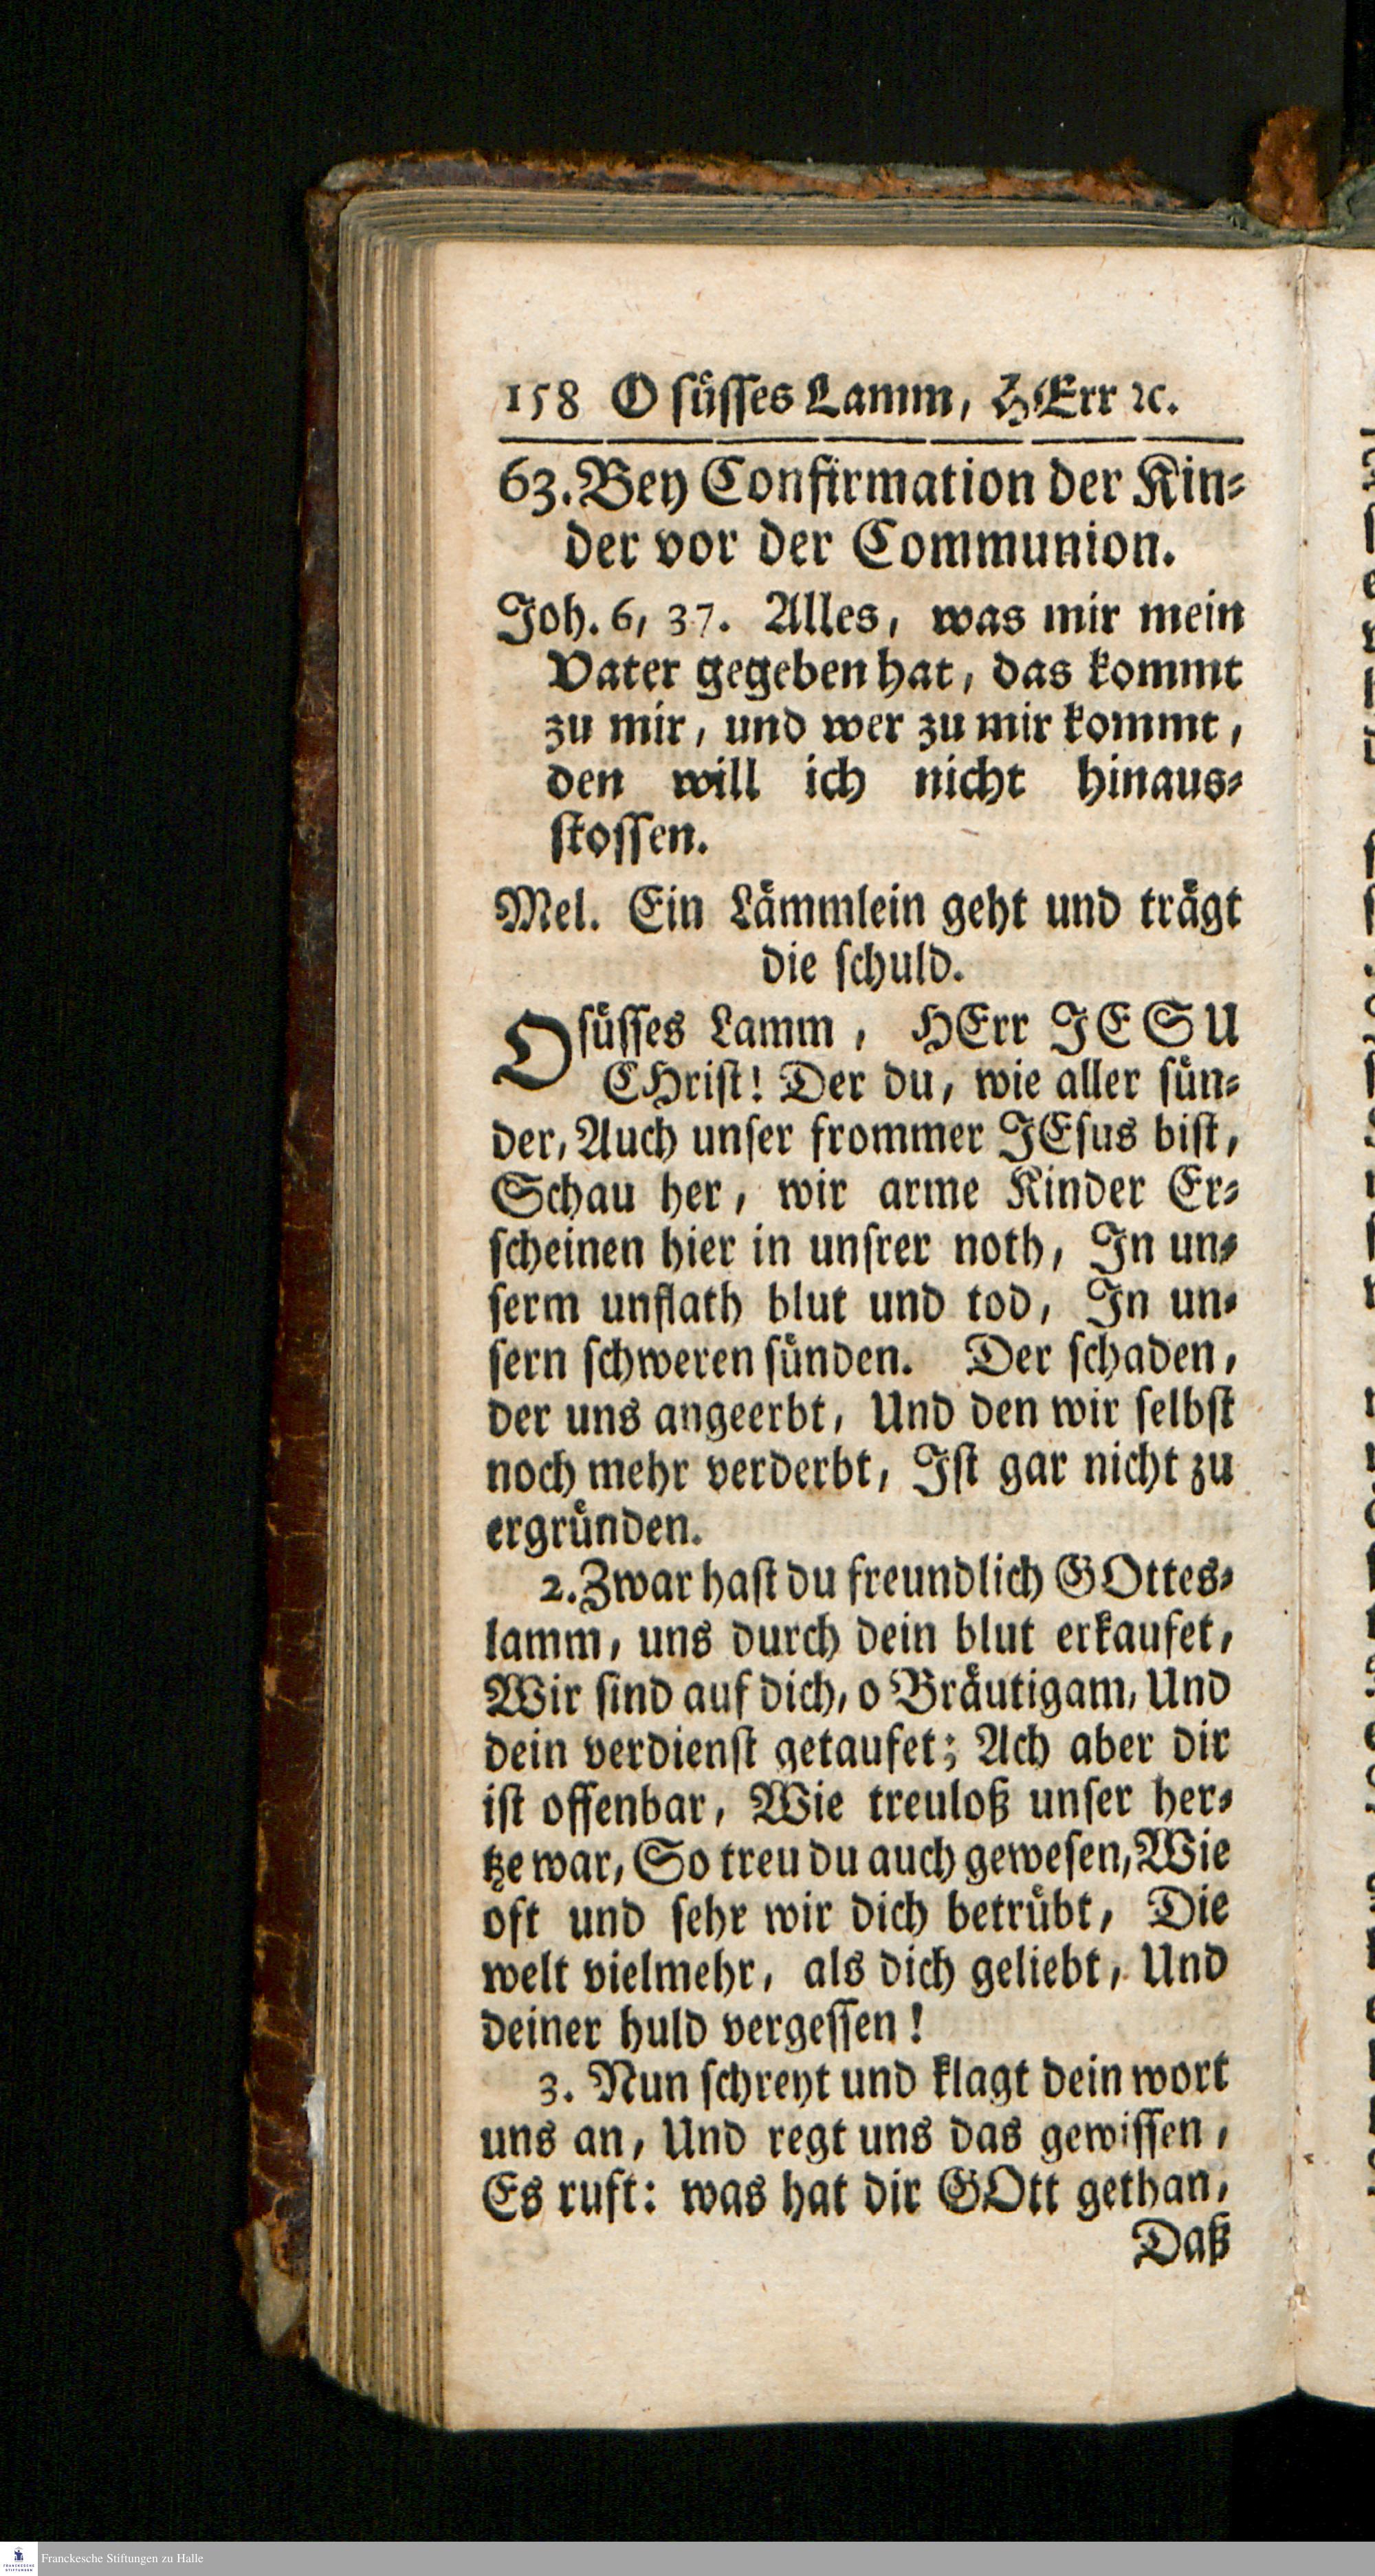 158 O ſuͤſſes Lamm, HErr ꝛc.
63. Bey Confirmation der Kin⸗
der vor der Communion.
Joh. 6, 37. Alles, was mir mein
Vater gegeben hat, das kommt
zu mir, und wer zu mir kommt,
den will ich nicht hinaus⸗
ſtoſſen.
Mel. Ein Laͤmmlein geht und traͤgt
die ſchuld.
O ſuͤſſes Lamm, HErr JESU
CHriſt! Der du, wie aller ſuͤn⸗
der, Auch unſer frommer JEſus biſt,
Schau her, wir arme Kinder Er⸗
ſcheinen hier in unſrer noth, In un⸗
ſerm unflath blut und tod, In un⸗
ſern ſchweren ſuͤnden. Der ſchaden,
der uns angeerbt, Und den wir ſelbſt
noch mehr verderbt, Iſt gar nicht zu
ergruͤnden.
2. Zwar haſt du freundlich GOttes⸗
lamm, uns durch dein blut erkaufet,
Wir ſind auf dich, o Braͤutigam, Und
dein verdienſt getaufet; Ach aber dir
iſt offenbar, Wie treuloß unſer her⸗
tze war, So treu du auch geweſen, Wie
oft und ſehr wir dich betruͤbt, Die
welt vielmehr, als dich geliebt, Und
deiner huld vergeſſen!
3. Nun ſchreyt und klagt dein wort
uns an, Und regt uns das gewiſſen,
Es ruft: was hat dir GOtt gethan,
Daß
Franckesche Stiftungen zu Halle